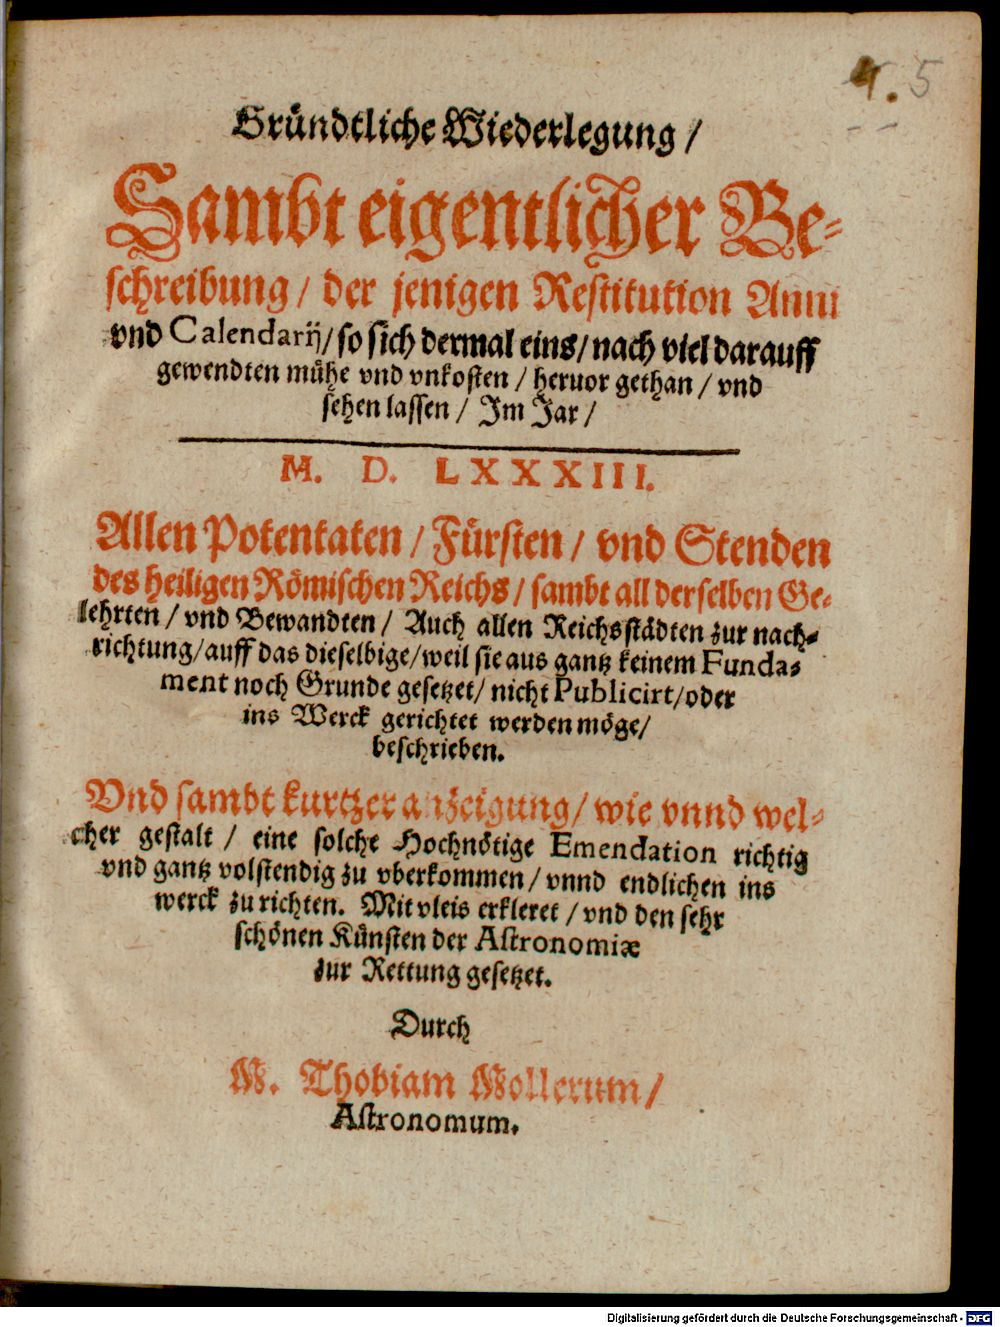 4. 5
Gründtliche Wiederlegung /
Sambt eigentlicher Be-
schreibung / der jenigen Restitution Anni
vnd Calendarij / so sich dermal eins / nach viel darauff
gewendten mühe vnd vnkosten / heruor gethan / vnd
sehen lassen / Im Jar /
M. D. LXXXIII.
Allen Potentaten / Fürsten / vnd Stenden
des heiligen Römischen Reichs / sambt all derselben Ge-
lehrten / vnd Bewandten / Auch allen Reichsstädten zur nach-
richtung / auff das dieselbige / weil sie aus gantz keinem Funda-
ment noch Grunde gesetzet / nicht Publicirt / oder
ins Werck gerichtet werden möge /
beschrieben.
Vnd sambt kurtzer anzeigung / wie vnnd wel-
cher gestalt / eine solche Hochnötige Emendation richtig
vnd gantz volstendig zu vberkommen / vnnd endlichen ins
werck zu richten. Mit vleis erkleret / vnd den sehr
schönen Künsten der Astronomiæ
zur Rettung gesetzet.
Durch
M. Thobiam Mollerum /
Astronomum.
Digitalisierung gefördert durch die Deutsche Forschungsgemeinschaft - DFG